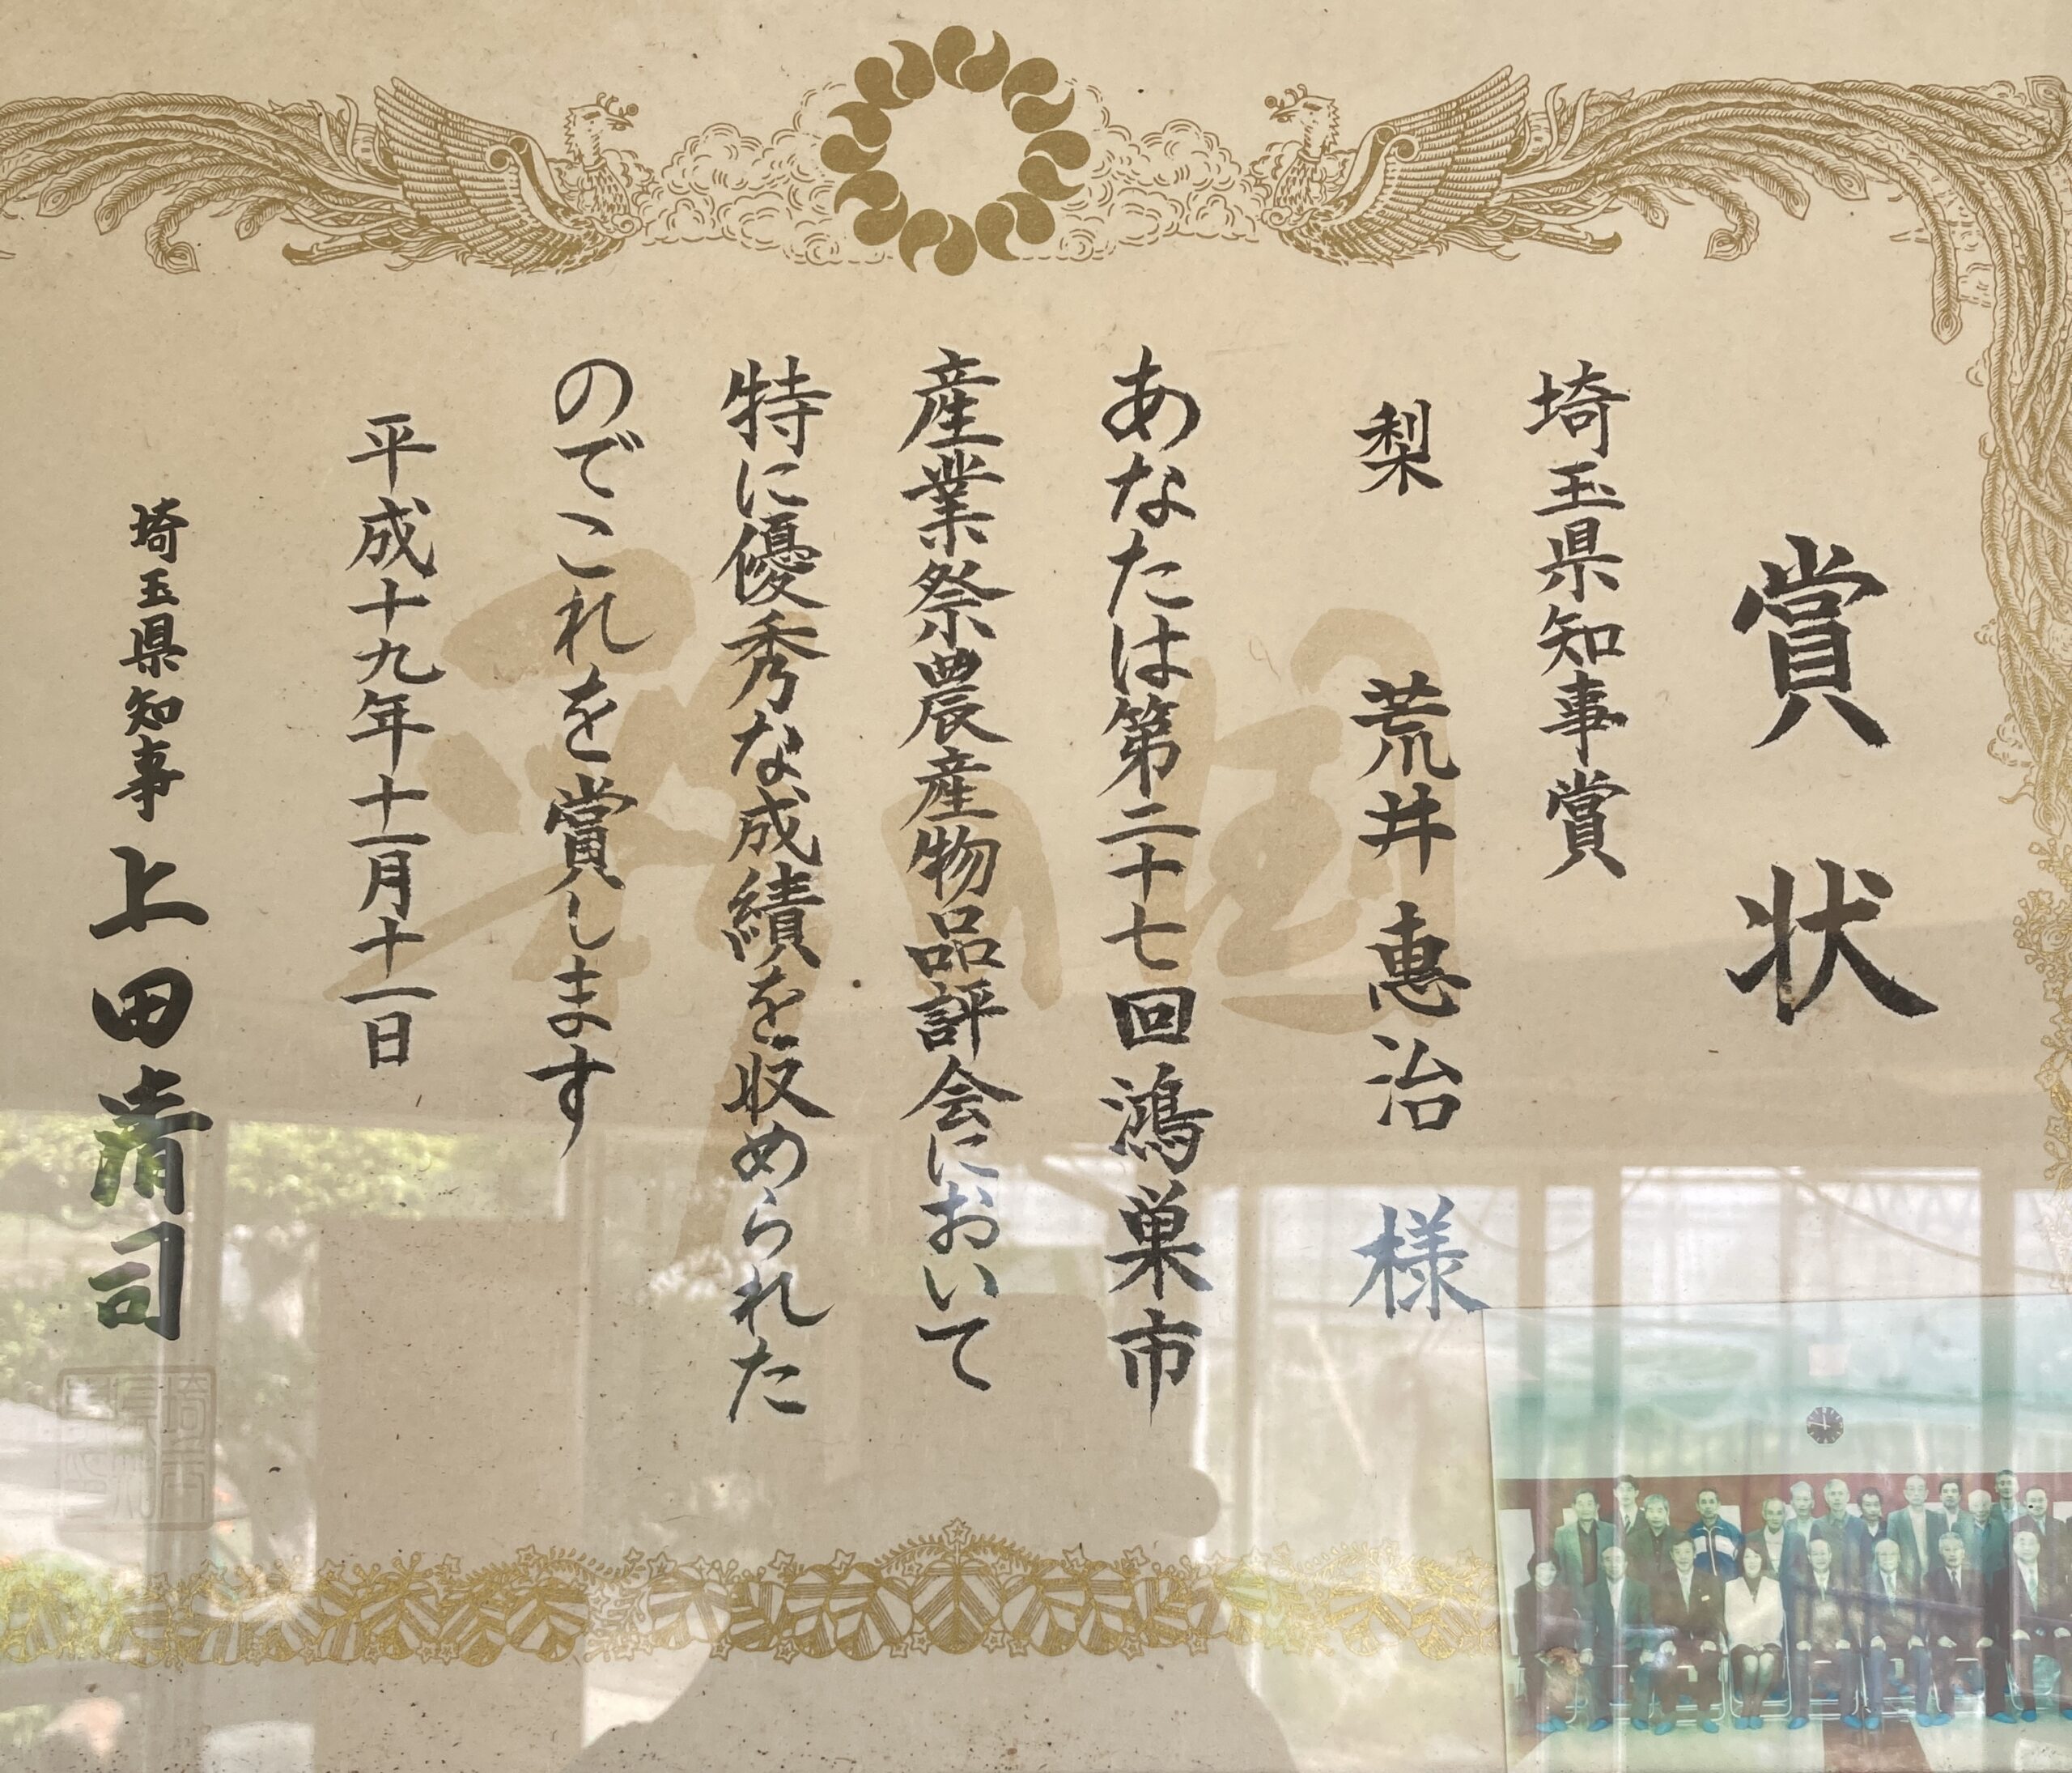 賞状
埼玉県知事賞
梨 荒井惠治様
あなたは第二十七回鴻巣市
産業祭農産物品評会において
特に優秀な成績を収められた
のでこれを賞します
平成十九年十一月十一日
埼玉県知事 上田清司